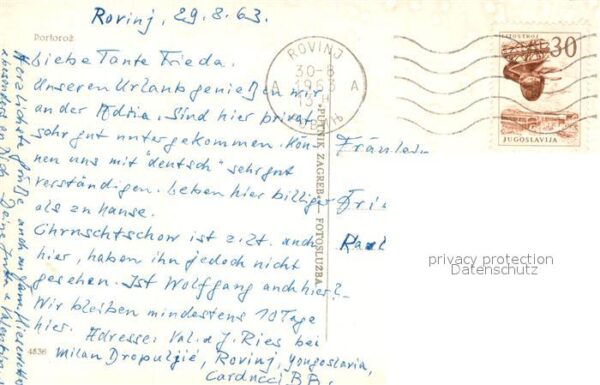 Rovinj, 29.8.63.
Portorož
Liebe Tante Frieda.
Unseren Urlaub genießen wir
an der Adria. Sind hier privat
sehr gut untergekommen. Kön-
nen uns mit "deutsch" sehr gut
verständigen. Leben hier billiger
als zu hause.
Chruschtschow ist z.Zt. auch
hier, haben ihn jedoch nicht
gesehen. Ist Wolfgang auch hier?
Wir bleiben mindestens 10 Tage
hier. Adresse: Val. u J. Ries bei
Milan Dropuljić, Rovinj, Yougoslavia,
Carducci 
Herzlichste Grüße auch an
besonders an Dich Deine
4836
PUTNIK ZAGREB — FOTOSLUŽBA
ROVINJ
30-8
1963
13 H
A A
Fräulein
JUGOSLAVIJA
30
JUGOSLAVIJA
privacy protection
Datenschutz